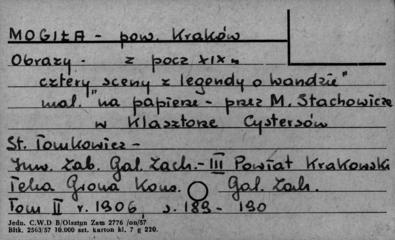 MOGIŁA - pow. Kraków
Obrazy - z pocz XIX w
cztery sceny z legendy o Wandzie"
mal. "na papierze - przez M. Stachowicza
w Klasztorze Cystersów
St. Tomkowicz -
Inw. Zab. Gal. Zach. - III Powiat Krakowski
Teka Grona Kons. Gal. Zach.
Tom II r. 1906 s. 189 - 190
Jedn. C.W.D B/Olsztyn Zam 2776 /on/57
Bltk. 2563/57 10.000 szt. karton kl. 7 g 220.